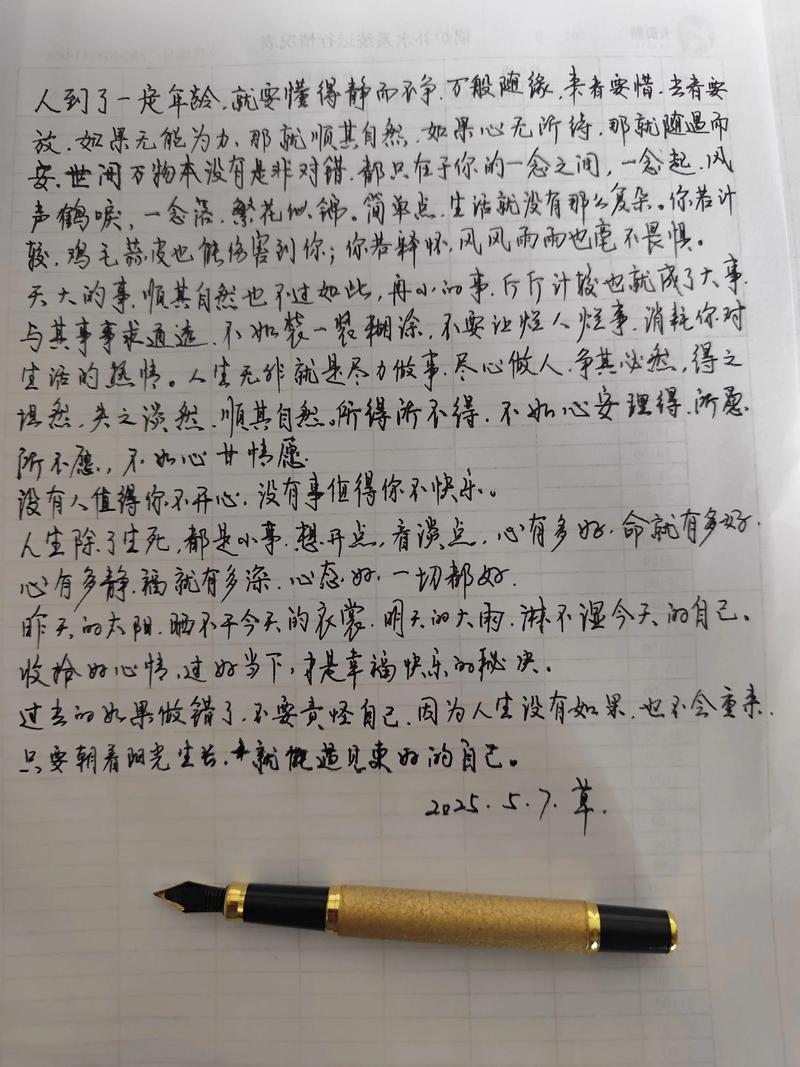 锅炉补水系统运行情况表
人到了一定年龄，就要懂得静而不争，万般随缘，来者要惜，去者要
放，如果无能为力，那就顺其自然，如果心无所待，那就随遇而
安，世间万物本没有是非对错，都只在于你的一念之间，一念起，风
声鹤唳，一念落，繁花似锦。简单点，生活就没有那么复杂。你若计
较，鸡毛蒜皮也能伤害到你；你若释怀，风风雨雨也毫不畏惧。
天大的事，顺其自然也不过如此，再小的事，斤斤计较也就成了大事，
与其事事求通透，不如装一装糊涂，不要让烂人烂事，消耗你对
生活的热情。人生无非就是尽力做事，尽心做人，争其必然，得之
坦然，失之淡然，顺其自然。所得所不得，不如心安理得，所愿
所不愿，不如心甘情愿
没有人值得你不开心，没有事值得你不快乐。
人生除了生死，都是小事，想开点，看淡点，心有多好，命就有多好，
心有多静，福就有多深，心态好，一切都好．
昨天的太阳，晒不干今天的衣裳，明天的大雨，淋不湿今天的自己。
收拾好心情，过好当下，才是幸福快乐的秘决。
过去的如果做错了，不要责怪自己，因为人生没有如果，也不会重来，
只要朝着阳光生长，就能遇见更好的自己。
2025.5.7.草．